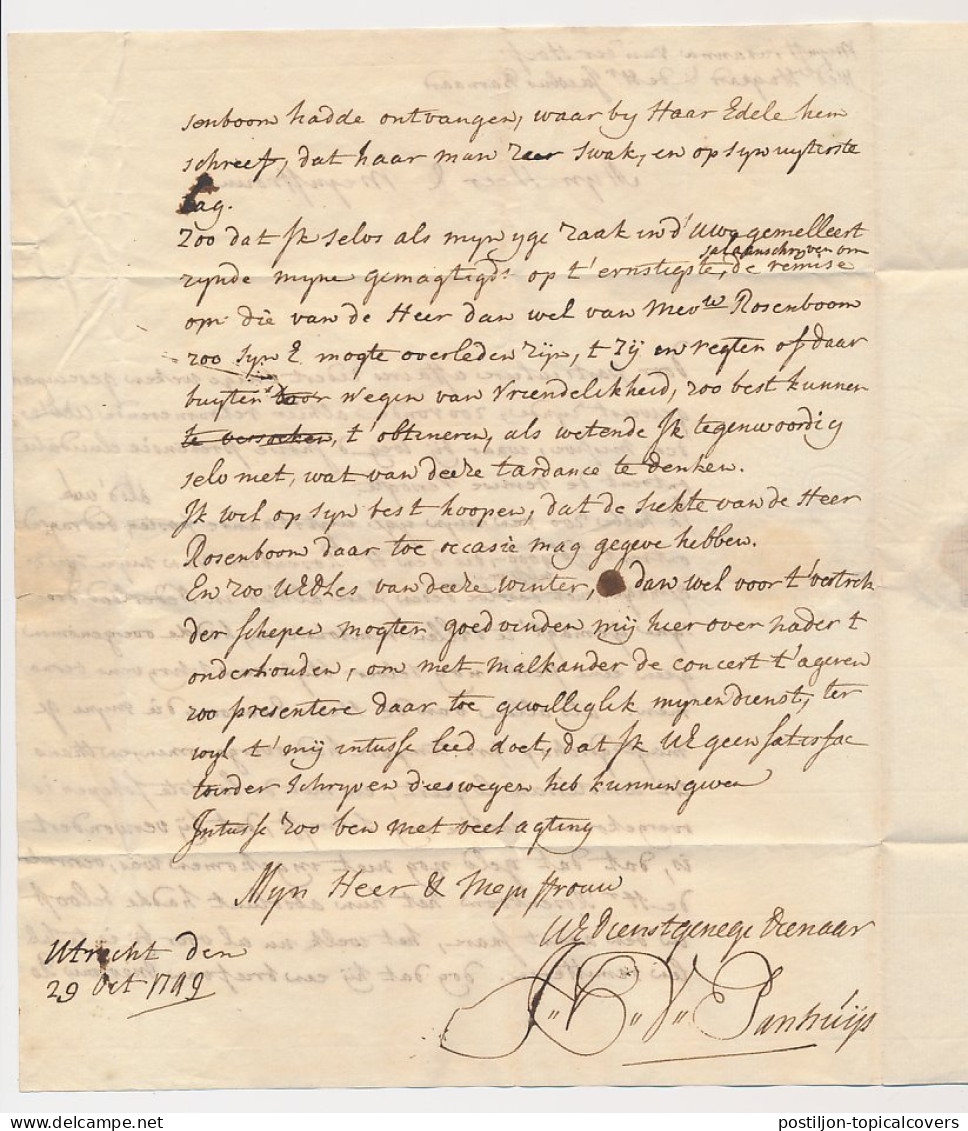 senboom hadde ontvangen, waar by Haar Edele hem
schreef, dat haar man zeer swak, en op syn uyterste
lag.
Zoo dat Jk selvs als myn yge zaak in d' Uwe gemelleert
zynde myne gemagtigds. op t' ernstigste, sal aanschryven om de remise
om die van de Heer dan wel van Mevw. Rosenboom
zoo syn E mogte overleden zijn, t zij en regten of daar
buyten door wegen van Vriendelikheid, zoo best kunnen
te versoeken, t' obtineren, als wetende Jk tegenwoordig
selv met, wat van deeze tardance te denken.
Jk wil op syn best hoopen, dat de siekte van de Heer
Rosenboom daar toe occasie mag gegeve hebben.
En zoo UEdles van deeze winter, dan wel voor t' vertrek
der schepen mogten goedvinden mij hier over nader t
onderhouden, om met malkander de concert t' ageren
zoo presentere daar toe gewilleglik mynen dienst, ter
wyl t' mij intusse leed doet, dat Jk UE geen satisfac
toirder schryven dieswegen heb kunnen geven
Jntusse zoo ben met veel agting
Myn Heer & Mejuffrouw
UE Dienstgenege Dienaar
Utrecht den
29 Oct 1749
Panhuijs
postiljon-topicalcovers